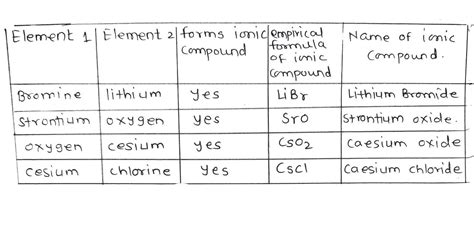 Element 1 | Element 2 | forms ionic compound | empirical formula of ionic compound | Name of ionic compound.
Bromine | lithium | yes | LiBr | Lithium Bromide
Strontium | oxygen | yes | SrO | Strontium oxide.
oxygen | cesium | yes | CsO2 | Caesium oxide
cesium | chlorine | yes | CsCl | Caesium chloride